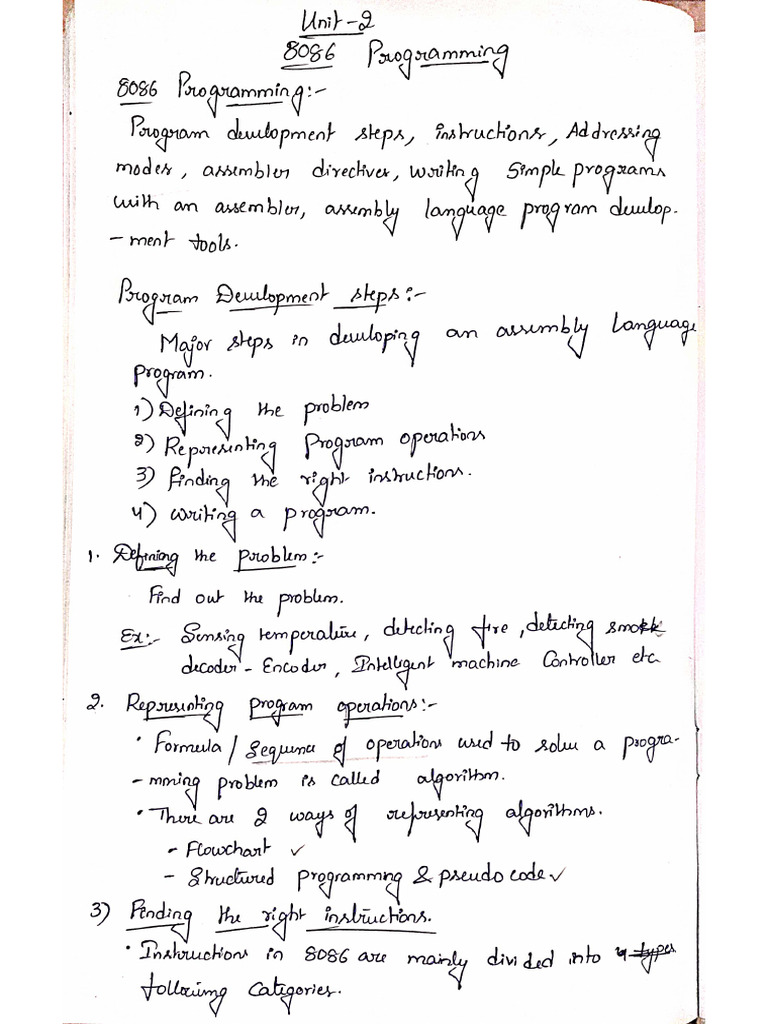 Unit-2
8086 Programming
8086 Programming:-
Program development steps, instructions, Addressing
modes, assembler directives, writing simple programs
with an assembler, assembly language program develop-
-ment tools.
Program Development steps:-
Major steps in developing an assembly language
program.
1) Defining the problem
2) Representing program operations
3) Finding the right instructions.
4) Writing a program.
1. Defining the problem:-
Find out the problem.
Ex:- Sensing temperature, detecting fire, detecting smoke
decoder-Encoder, Intelligent machine Controller etc
2. Representing program operations:-
• Formula/Sequence of operations used to solve a progra-
-mming problem is called algorithm.
• There are 2 ways of representing algorithms.
- Flowchart ✓
- Structured programming & pseudo code ✓
3) Finding the right instructions.
• Instructions in 8086 are mainly divided into 4 types
following categories.